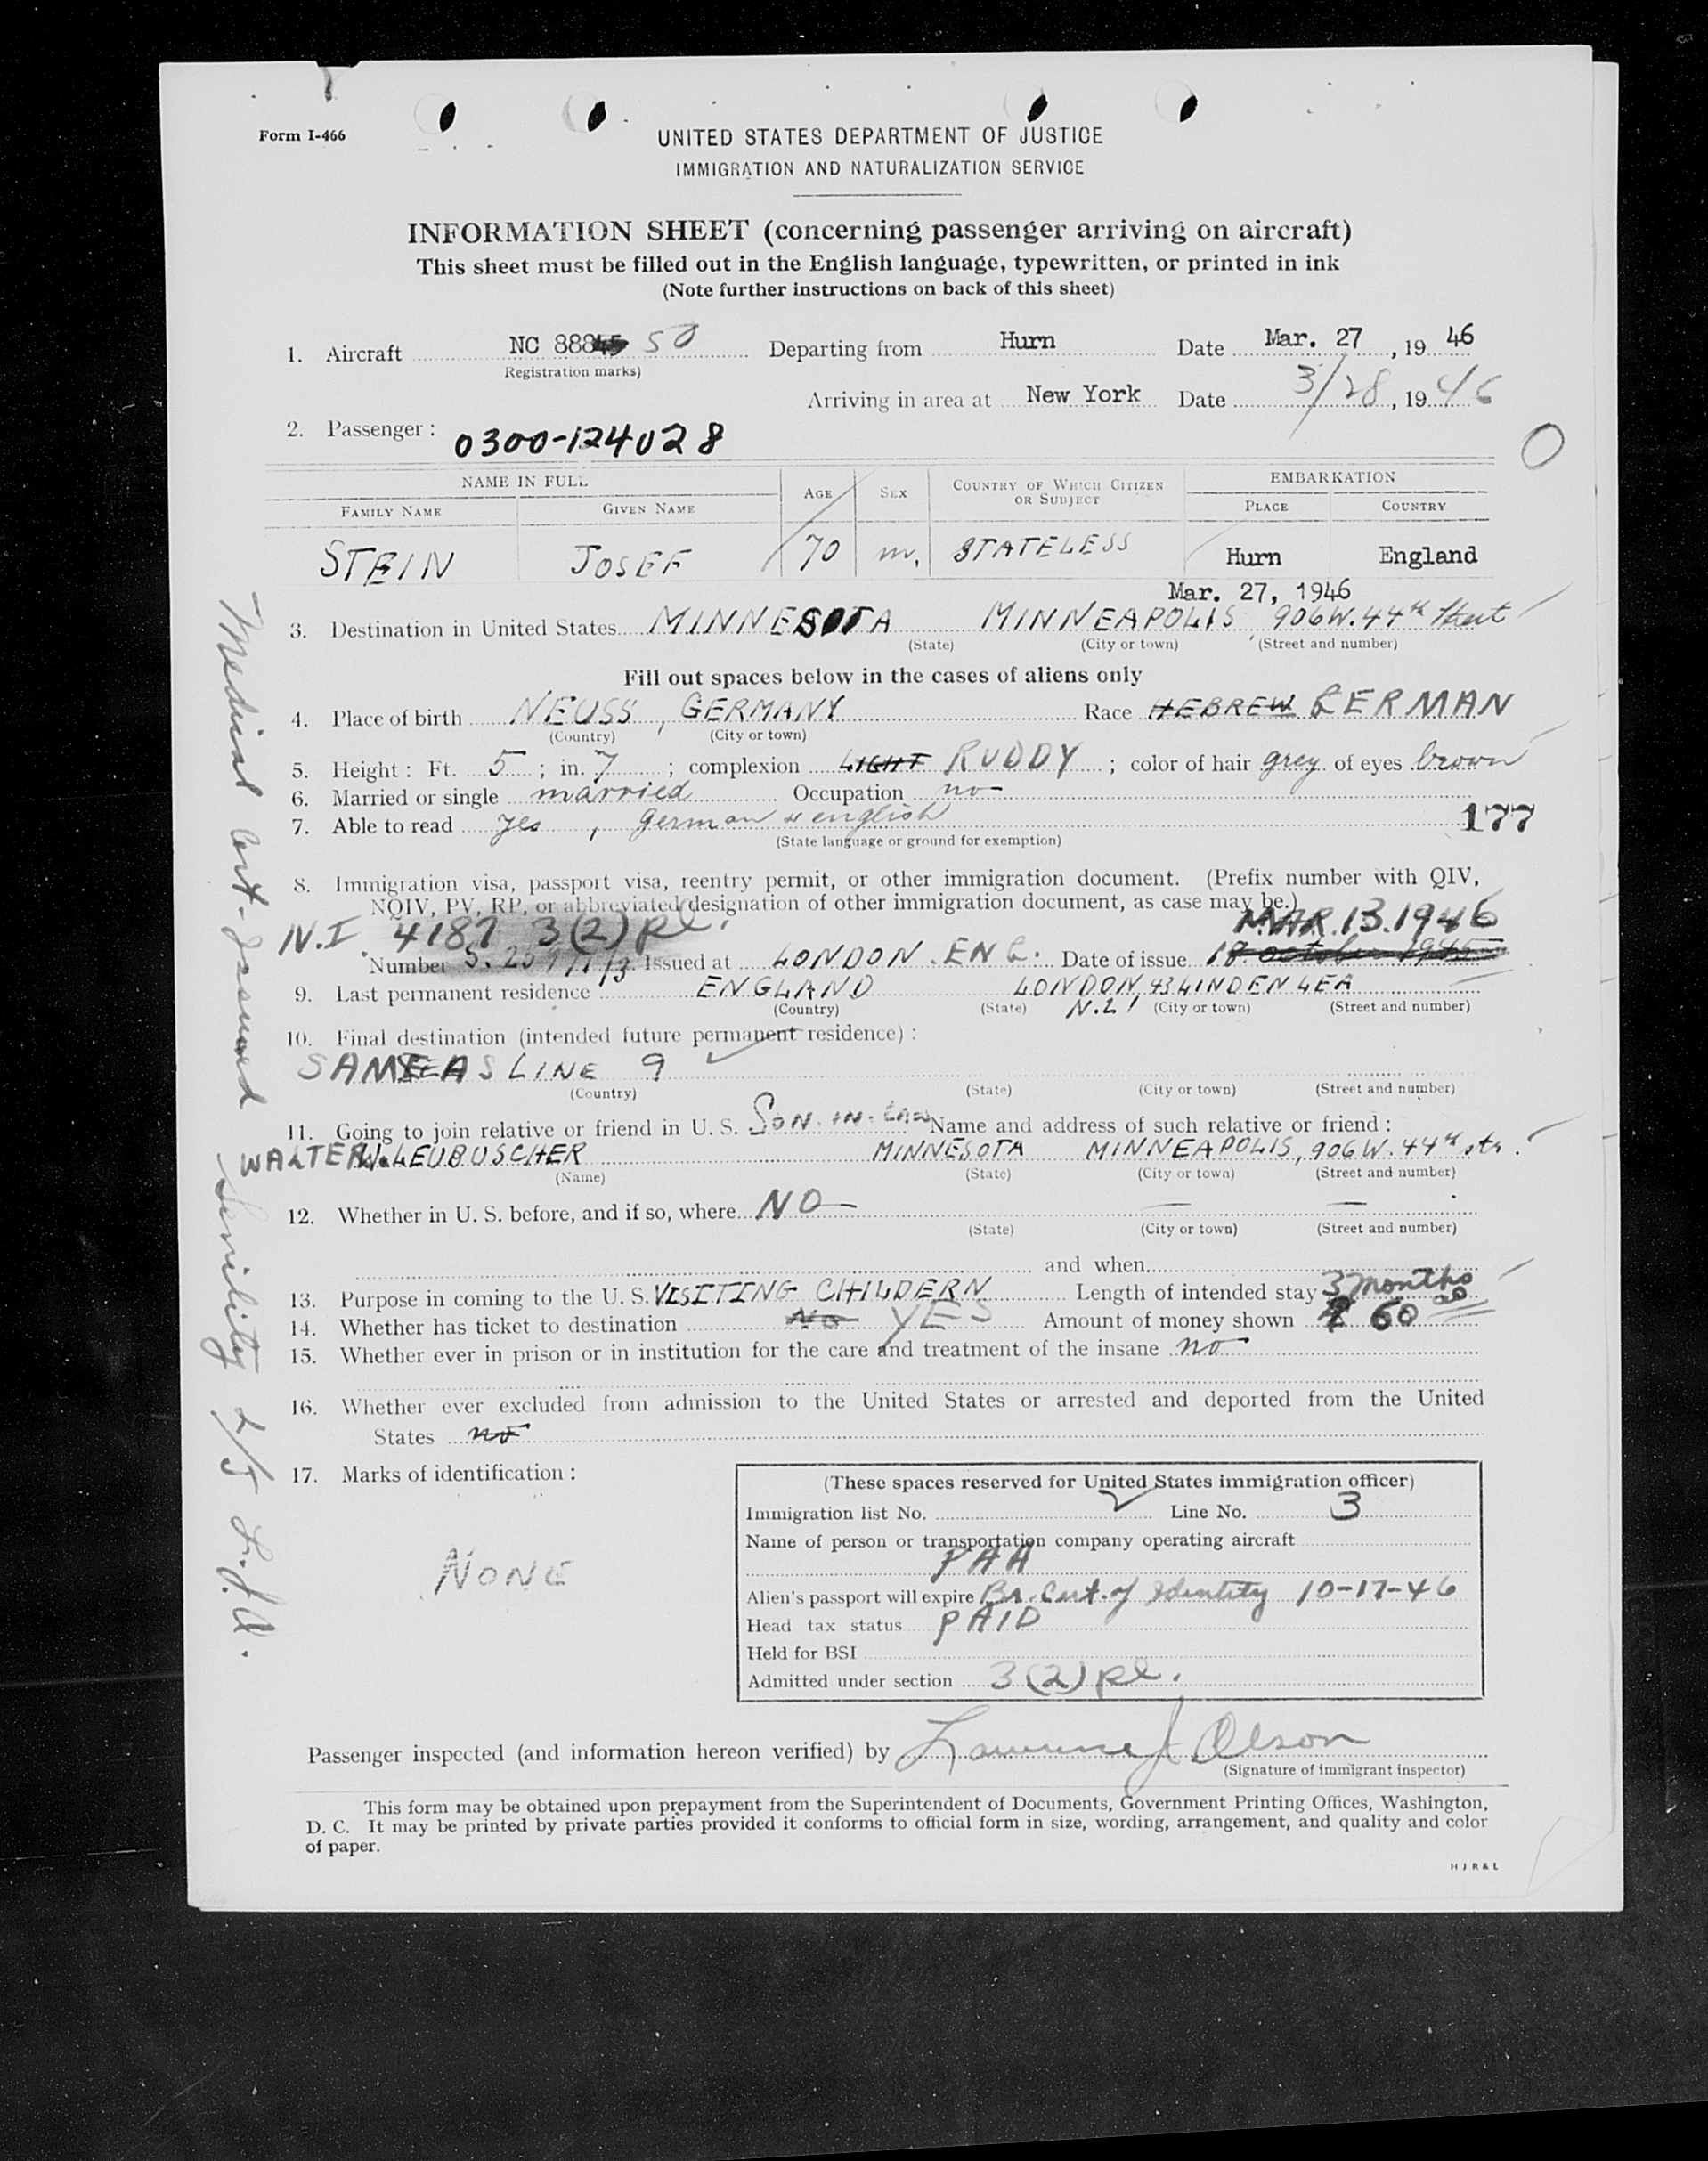 Form I-466
UNITED STATES DEPARTMENT OF JUSTICE
IMMIGRATION AND NATURALIZATION SERVICE
INFORMATION SHEET (concerning passenger arriving on aircraft)
This sheet must be filled out in the English language, typewritten, or printed in ink
(Note further instructions on back of this sheet)
1. Aircraft NC 888 50 Departing from Hurn Date Mar. 27, 19 46
Registration marks)
Arriving in area at New York Date 3/28, 19 46
2. Passenger: 0300-124028
NAME IN FULL AGE SEX COUNTRY OF WHICH CITIZEN OR SUBJECT EMBARKATION
FAMILY NAME GIVEN NAME PLACE COUNTRY
STEIN JOSEF 70 m. STATELESS Hurn England
Mar. 27, 1946
3. Destination in United States MINNESOTA MINNEAPOLIS 906 W. 44th Street
(State) (City or town) (Street and number)
Fill out spaces below in the cases of aliens only
4. Place of birth NEUSS, GERMANY Race HEBREW GERMAN
(Country) (City or town)
5. Height: Ft. 5; in. 7; complexion LIGHT RUDDY; color of hair grey of eyes brown
6. Married or single married Occupation no-
7. Able to read yes, german & english
177
(State language or ground for exemption)
8. Immigration visa, passport visa, reentry permit, or other immigration document. (Prefix number with QIV,
NQIV, PV, RP, or abbreviated designation of other immigration document, as case may be.)
N.I. 4187 3(2) pl. MAR.13.1946
Number Issued at LONDON. ENG. Date of issue 18 october 1945
9. Last permanent residence ENGLAND LONDON, 43 LINDEN LEA
(Country) (State) N.2, (City or town) (Street and number)
10. Final destination (intended future permanent residence):
SAME AS LINE 9
(Country) (State) (City or town) (Street and number)
11. Going to join relative or friend in U. S. SON-IN-LAW Name and address of such relative or friend:
WALTER W. LEUBUSCHER MINNESOTA MINNEAPOLIS, 906 W. 44th str.
(Name) (State) (City or town) (Street and number)
12. Whether in U. S. before, and if so, where NO — — —
(State) (City or town) (Street and number)
and when
13. Purpose in coming to the U. S. VISITING CHILDERN Length of intended stay 3 Months
14. Whether has ticket to destination No YES Amount of money shown 60 00
15. Whether ever in prison or in institution for the care and treatment of the insane no
16. Whether ever excluded from admission to the United States or arrested and deported from the United
States no
17. Marks of identification:
NONE
(These spaces reserved for United States immigration officer)
Immigration list No. Line No. 3
Name of person or transportation company operating aircraft
PAA
Alien's passport will expire Br. Cert. of Identity 10-17-46
Head tax status PAID
Held for BSI
Admitted under section 3(2) pl.
Passenger inspected (and information hereon verified) by Lawrence J Olson
(Signature of immigrant inspector)
This form may be obtained upon prepayment from the Superintendent of Documents, Government Printing Offices, Washington,
D. C. It may be printed by private parties provided it conforms to official form in size, wording, arrangement, and quality and color
of paper.
H J R & L
Medical cert. Issued Senility 2/5 L.J.O.